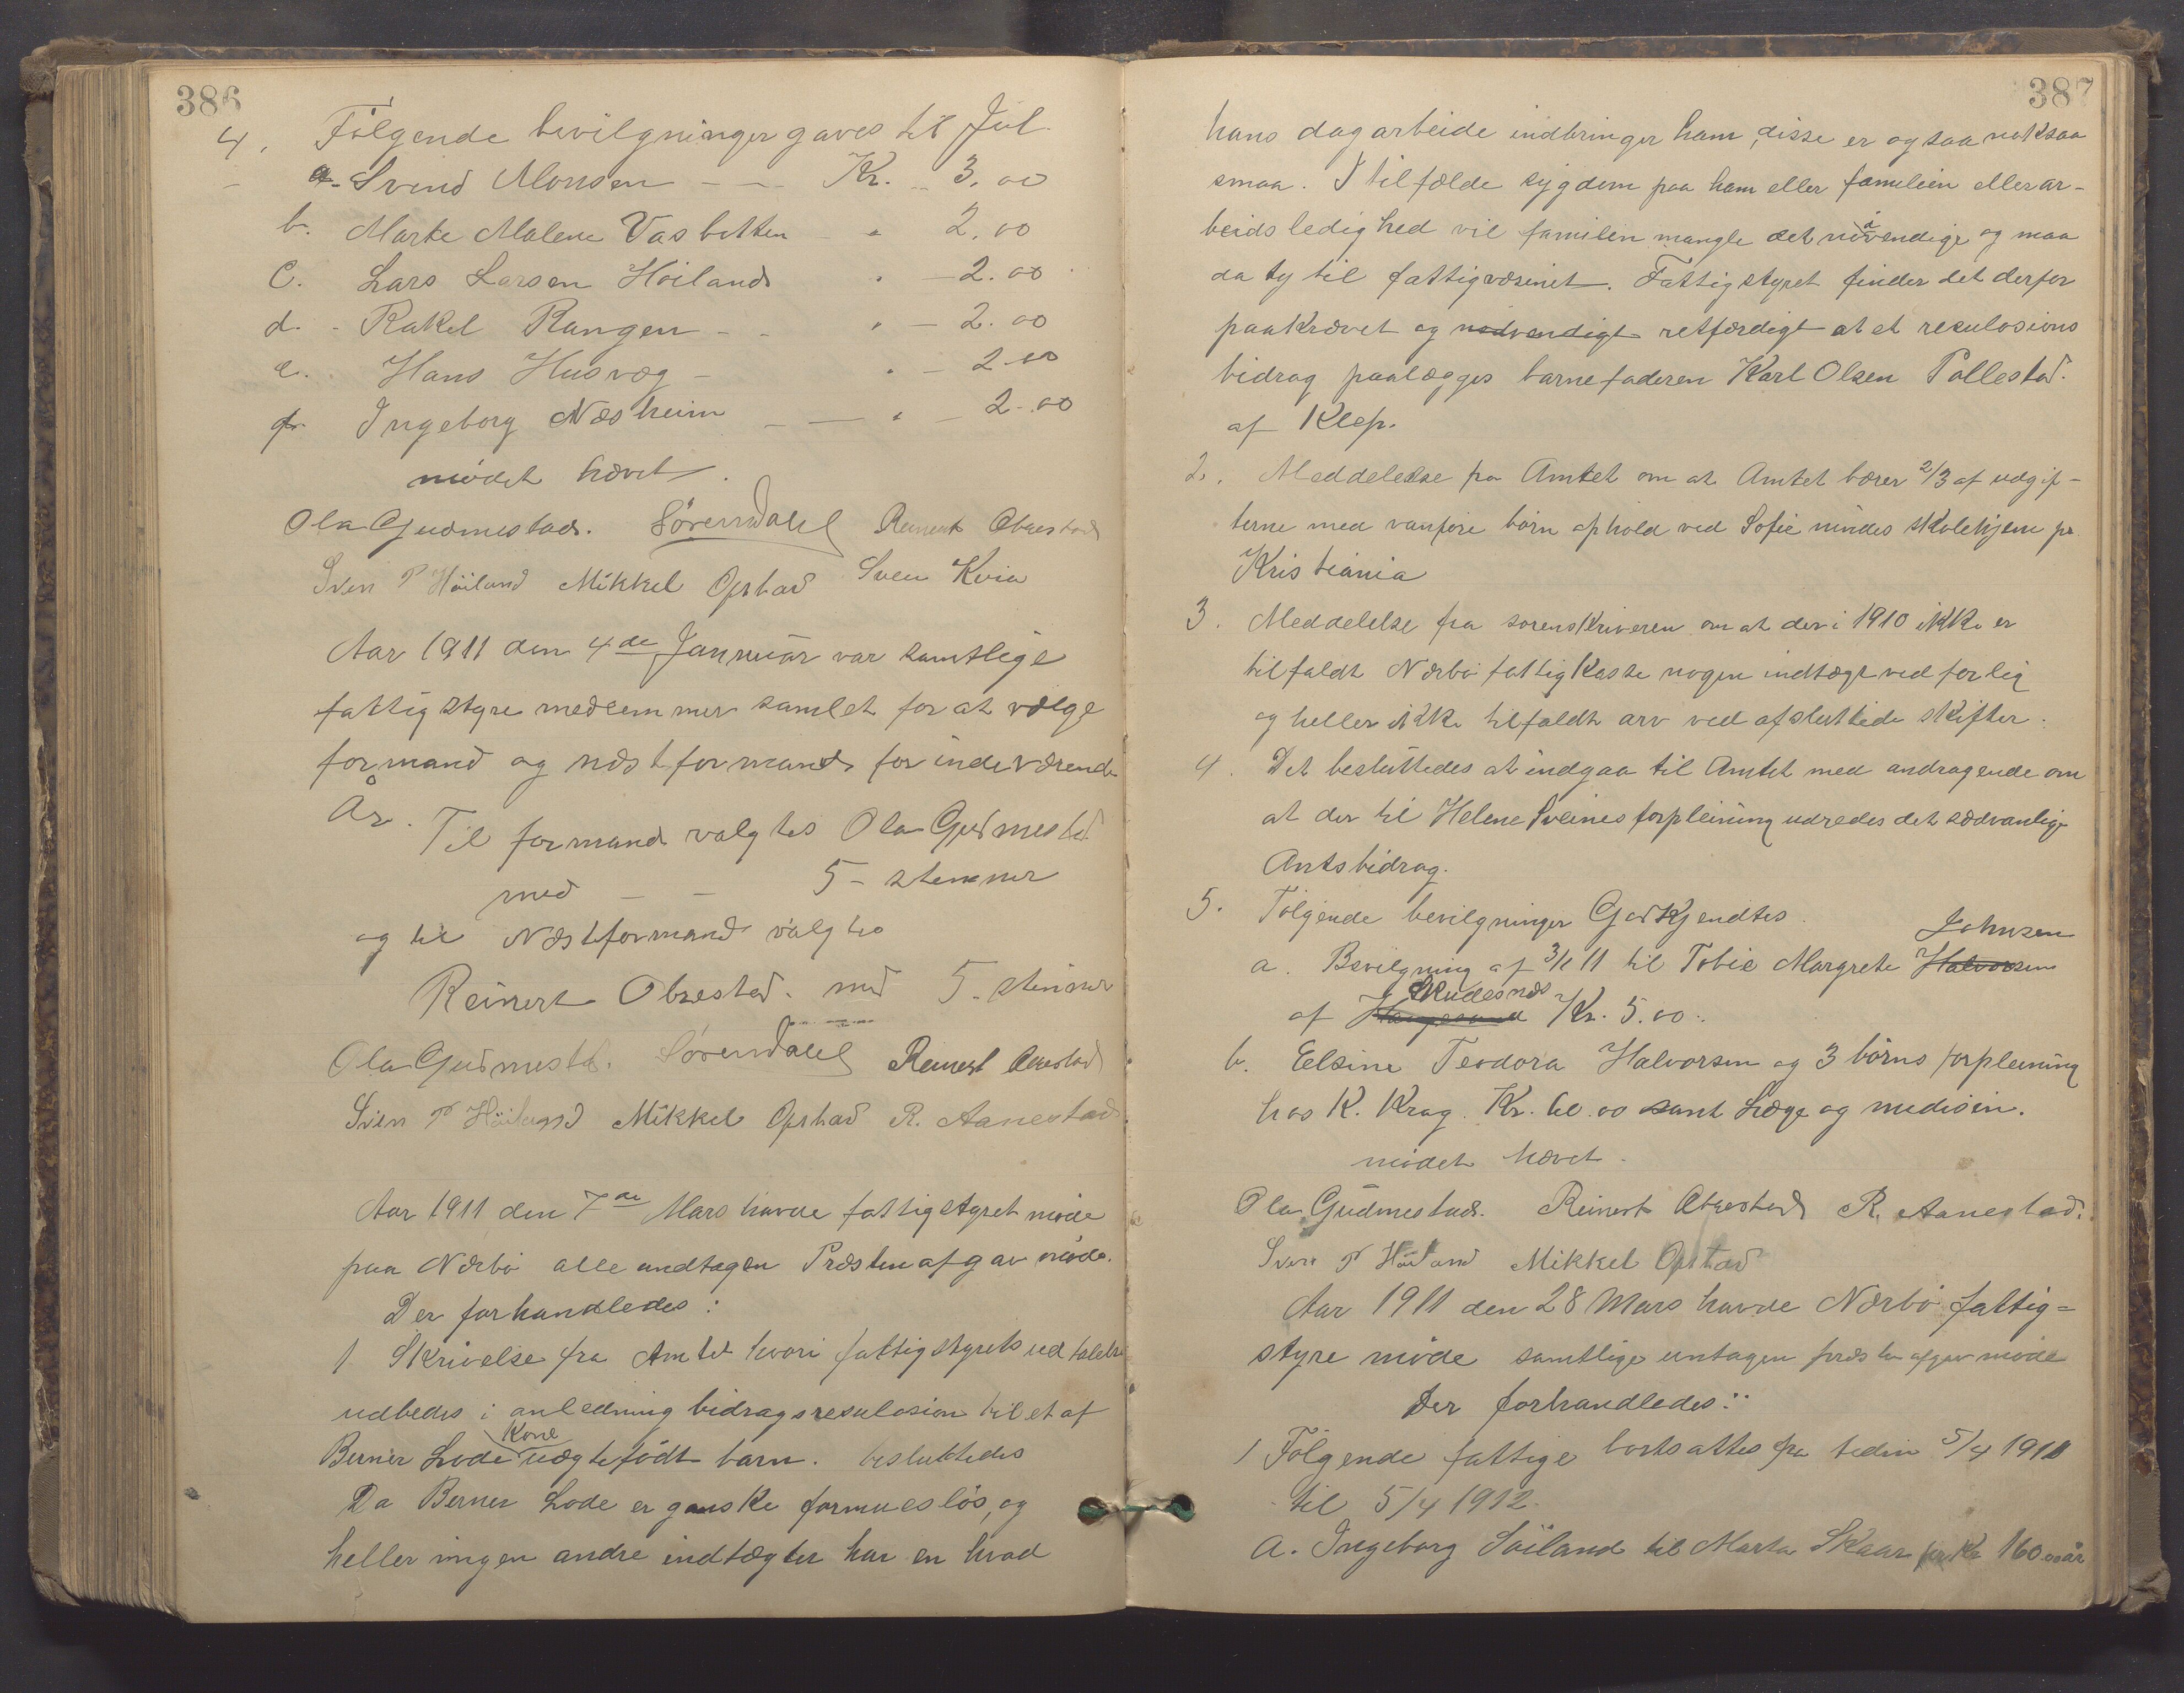 386
4. Følgende bevilgninger gaves til Jul
a. Svend Monsen - - Kr. - 3.00
b. Marte Malene Vasbotten " 2.00
C. Lars Larsen Höiland " - 2.00
d. - Rakel Rangen - - " - 2.00
e. Hans Husvæg - " - 2.00
f. Ingeborg Næsheim - - " - 2.00
mödet hævet.
Ola Gudmestad. Sörensdahl Reinert Obrestad
Sven P Höiland Mikkel Opstad Sven Kvia
Aar 1911 den 4de Januar var samtlige
fattigstyre medlemmer samlet for at vælge
formand og næstformand for indeværende
År. Til formand valgtes Ola Gudmestad
med - - 5 - stemmer
og til Næstformand valgtes
Reinert Obrestad. med 5. stemmer
Ola Gudmestad. Sörensdahl Reinert Obrestad
Sven P Höiland Mikkel Opstad R. Aanestad
Aar 1911 den 7de Mars havde fattigstyret möde
paa Nærbö alle undtagen Presten afgav möde.
Der forhandledes:
1 Skrivelse fra Amtet hvori fattigstyrets udtalelse
udbedes i anledning bidragsresulosion til et af
Berner Lode Kone uægtefödt barn. besluttedes
Da Berner Lode er ganske formueslös, og
heller ingen andre indtægter har en hvad
387
hans dagarbeide indbringer ham, disse er ogsaa noksaa
smaa. I tilfælde sygdom paa ham eller familien eller ar-
beidsledighed vil familien mangle det nödvendige og maa
da ty til fattigvæsenet. Fattigstyret finder det derfor
paakrævet og nødvendigt retfærdigt at et resulosions
bidrag paalægges barnefaderen Karl Olsen Pollestad.
af Klep.
2. Meddelelse fra Amtet om at Amtet bærer 2/3 af udgif-
terne med vanföre börn ophold ved Sofie mindes skolehjem pr
Kristiania
3. Meddelelse fra sorenskriveren om at der i 1910 ikke er
tilfaldt Nærbö fattigkasse nogen indtægt ved forlig
og heller ikke tilfaldt arv ved afsluttede skifter.
4. Det besluttedes at indgaa til Amtet med andragende om
at der til Helene Sveines forpleining udredes det sædvanlige
Amtsbidrag.
5. Følgende bevilgninger Godkjendtes.
a. Bevilgning af 3/1 11 til Tobie Margrete Halvorsen Johnsen
af Haugesund Skudesnæs Kr. 5.00.
b. Elsine Teodora Halvorsen og 3 börns forpleining
hos K. Krag. Kr. 60.00 samt Læge og medisin.
mödet hævet.
Ola Gudmestad. Reinert Obrestad R. Aanestad.
Sven P Höiland Mikkel Opstad
Aar 1911 den 28 Mars havde Nærbö fattig=
styre möde samtlige untagen presten afgav möde
Der forhandledes:
1 Fölgende fattige bortsattes fra tiden 5/4 1911
til 5/4 1912.
a. Ingeborg Söiland til Marta Skaar for Kr 160.00 år